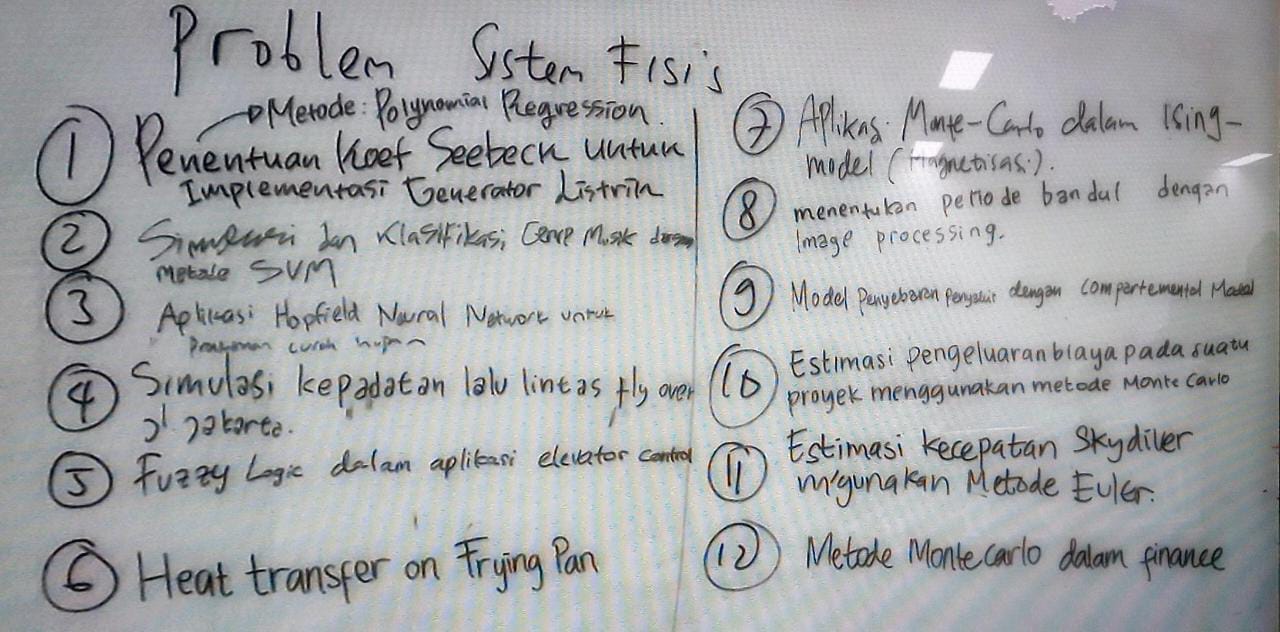 Problem Sistem Fisis
→ Metode: Polynomial Regression.
1 Penentuan Koef Seebeck untuk
Implementasi Generator Listrik
2 Simulasi dan Klasifikasi Genre Musik dengan
metode SVM
3 Aplikasi Hopfield Neural Network untuk
curah hujan
4 Simulasi kepadatan lalu lintas fly over
di Jakarta.
5 Fuzzy Logic dalam aplikasi elevator control
6 Heat transfer on Frying Pan
7 Aplikasi Monte-Carlo dalam Ising-
model (Magnetisasi).
8 menentukan periode bandul dengan
Image processing.
9 Model Penyebaran Penyakit dengan Compartemental Model
10 Estimasi pengeluaran biaya pada suatu
proyek menggunakan metode Monte Carlo
11 Estimasi kecepatan Skydiver
m'gunakan Metode Euler.
12 Metode Monte carlo dalam finance